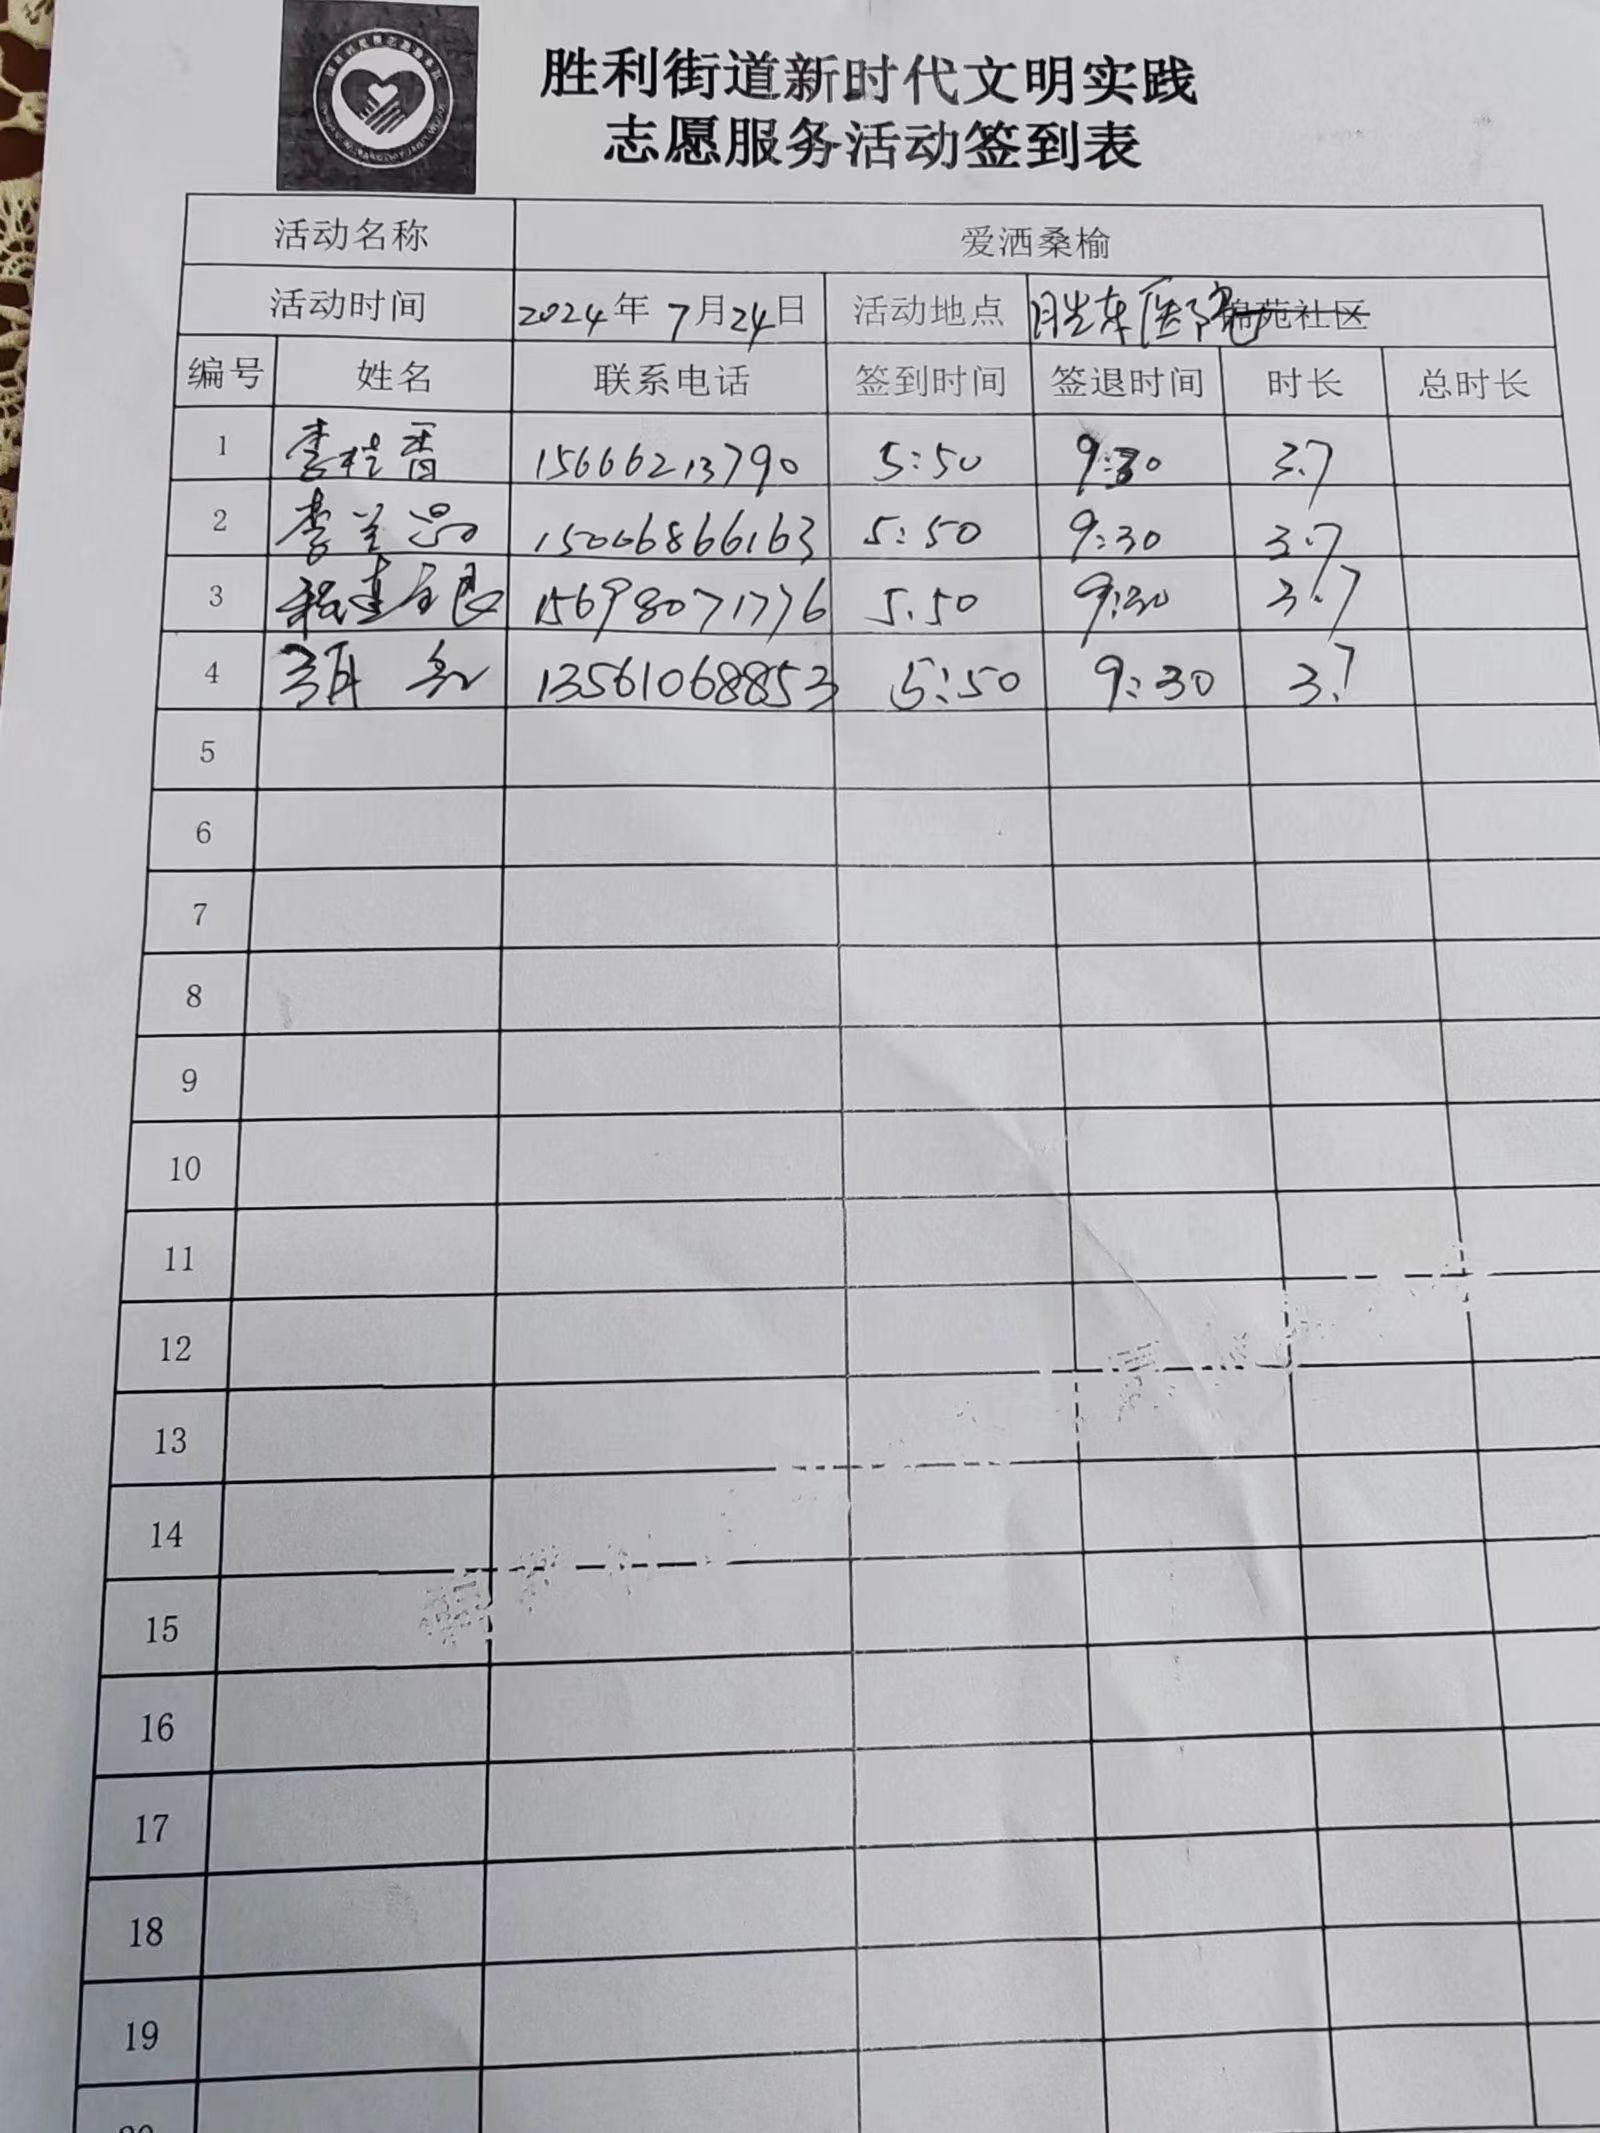 胜利街道新时代文明实践
志愿服务活动签到表
活动名称 爱洒桑榆
活动时间 2024年 7月24日 活动地点 胜东医院 锦苑社区
编号 姓名 联系电话 签到时间 签退时间 时长 总时长
1 李桂香 15666213790 5:50 9:30 3.7
2 李兰 15006866163 5:50 9:30 3.7
3 程建良 15698071776 5.50 9:30 3.7
4 13561068853 5:50 9:30 3.7
5
6
7
8
9
10
11
12
13
14
15
16
17
18
19
20